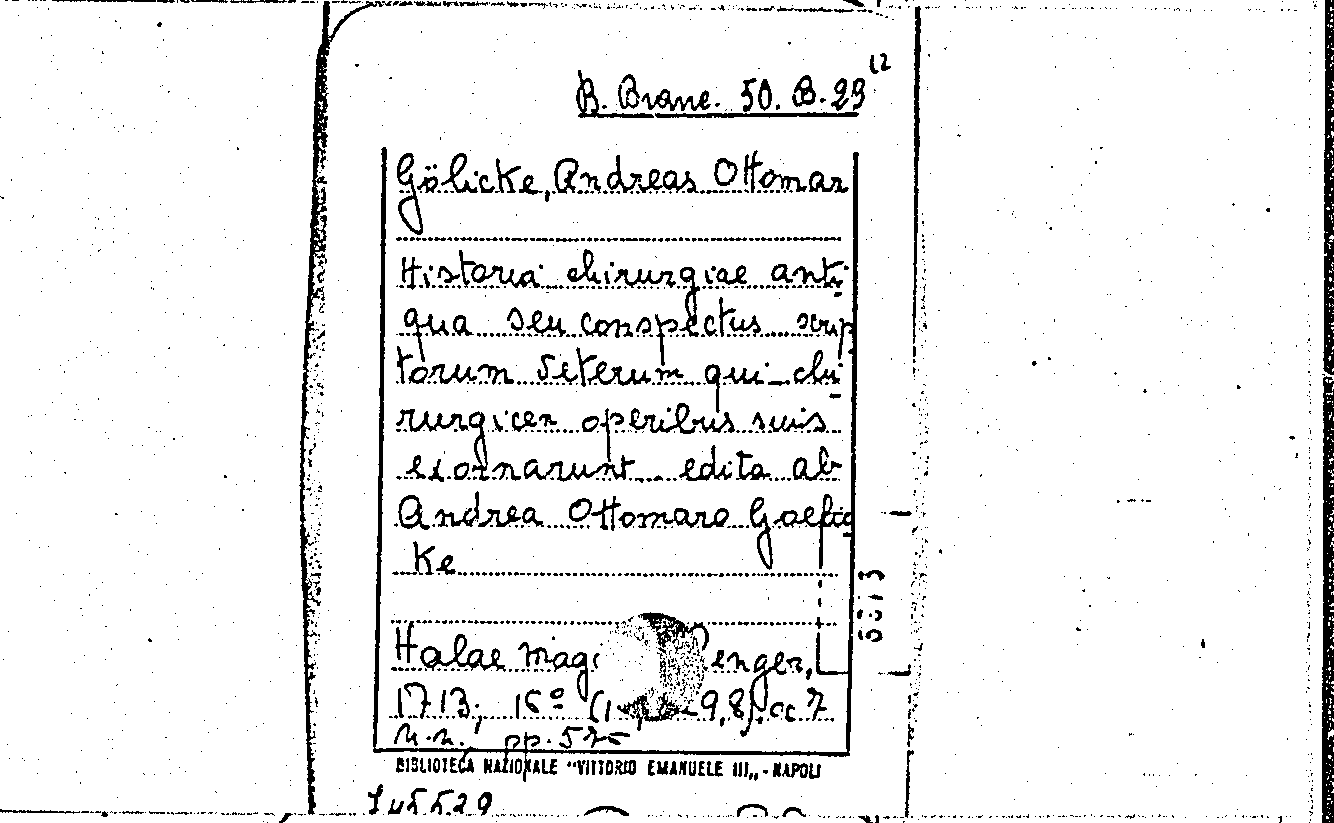 B. Branc. 50. B. 29 12
Gölicke, Andreas Ottomar
Historia chirurgiae anti-
qua seu conspectus scrip-
torum veterum qui chi-
rurgicen operibus suis
exornarunt edita ab
Andrea Ottomaro Goelic-
ke
Halae mag enger,
1713; 16º 9,8). cc 7
n.n., pp.
5813
BIBLIOTECA NAZIONALE "VITTORIO EMANUELE III„ - NAPOLI